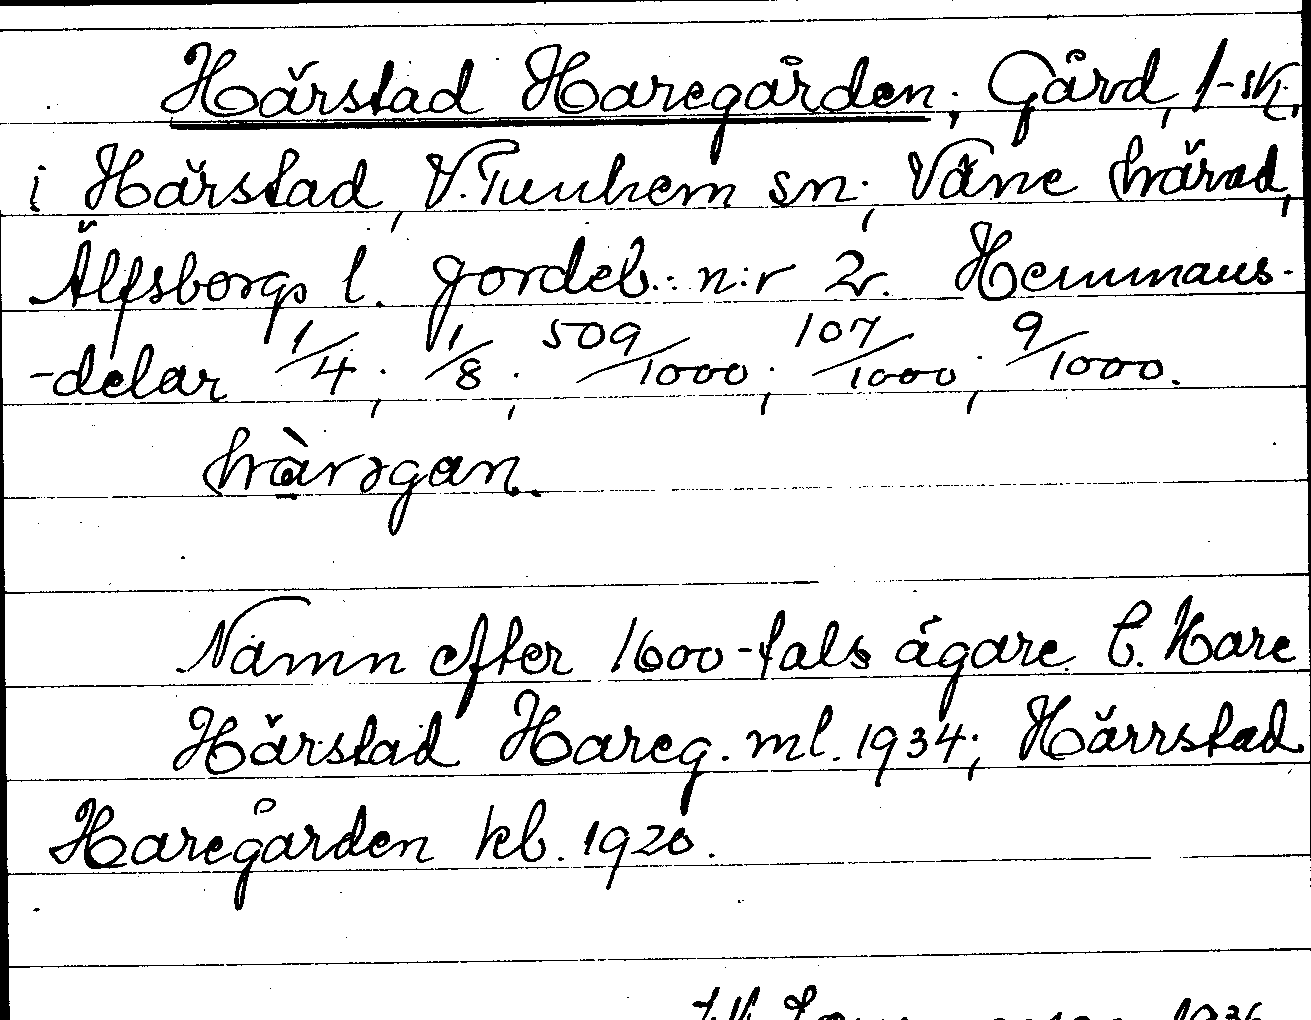 Härstad Haregården; Gård, 1-skj.
i Härstad, V. Tunhem sn; Väne härad,
Älfsborgs l. Jordeb. n:r 2. Hemmans-
-delar 1/4; 1/8; 509/1000; 107/1000; 9/1000.
hàrəgan.
Namn efter 1600-tals ägare C. Hare
Härstad Hareg. ml. 1934; Härrstad
Haregården kb. 1920.
1936